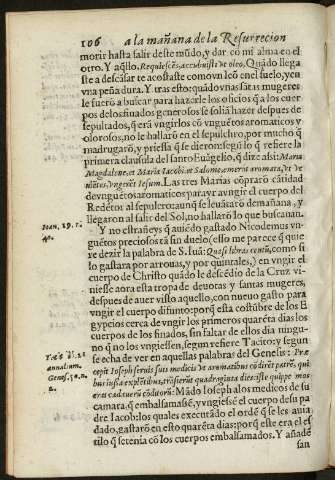 106 a la mañana de la Resurrecion
morir hasta salir deste mũdo, y dar cõ mi alma en el
otro. Y aq̃llo. Requiescẽs, accubuisti vt leo. Quãdo llega
ste a descãsar te acostaste como vn leõ en el suelo, y en
vna peña dura. Y tras esto: quãdo vnas sãtas mugeres
le fuerõ a buscar para hazerle los oficios q̃ a los cuer
pos de los finados generosos se soliã hazer despues de
sepultados, q̃ era vngirlos cõ vnguẽtos aromaticos y
olorosos, no le hallarõ en el sepulchro, por mucho q̃
madrugarõ, y priessa q̃ se dieron: segũ lo q̃ refiere la
primera clausula del santo Euãgelio, q̃ dize assi: Maria
Magdalene, et Maria Iacobi, et Salome, emerũt aromata, vt ve
niẽtes, vngerẽt Iesum. Las tres Marias cõprarõ cãtidad
de vnguẽtos aromaticos para yr a vngir el cuerpo del
Redẽtor al sepulcro: aunq̃ se leuãtarõ de mañana, y
llegaron al salir del Sol, no hallarõ lo que buscauan.
Ioan. 19. n.
40.
Y no estrañeys q̃ auiẽdo gastado Nicodemus vn-
guẽtos preciosos tã sin duelo (esso me parece q̃ quie
re dezir la palabra de S. Iuã: Quasi libras centũ, como si
lo gastara por arrouas, y por quintales,) en vngir el
cuerpo de Christo quãdo le descẽdio de la Cruz vi-
niesse aora esta tropa de deuotas y santas mugeres,
despues de auer visto aquello, con nueuo gasto para
vngir el cuerpo difunto: porq̃ esta costũbre de los E
gypcios cerca de vngir los primeros quarẽta dias los
cuerpos de los finados, sin faltar de ellos dia ningu-
no q̃ no los vngiessen, segun refiere Tacito; y segun
se echa de ver en aquellas palabras del Genesis: Præ
annalium.
Genes. 50. n.
2.
cepit Ioseph seruis suis medicis vt aromatibus cõdirẽt patrẽ, qui
bus iussa explẽtibus, trãsierũt quadraginta dies: iste quippe mos
erat cadauerũ cõditorũ: Mãdo Ioseph a los medicos de su
camara, q̃ embalsamassẽ, y vngiessẽ el cuerpo de su pa
dre Iacob: los quales executãdo el ordẽ q̃ se les auia
dado, gastarõ en esto quarẽta dias: porq̃ este era el es
tilo q̃ se tenia cõ los cuerpos embalsamados. Y añadẽ
san